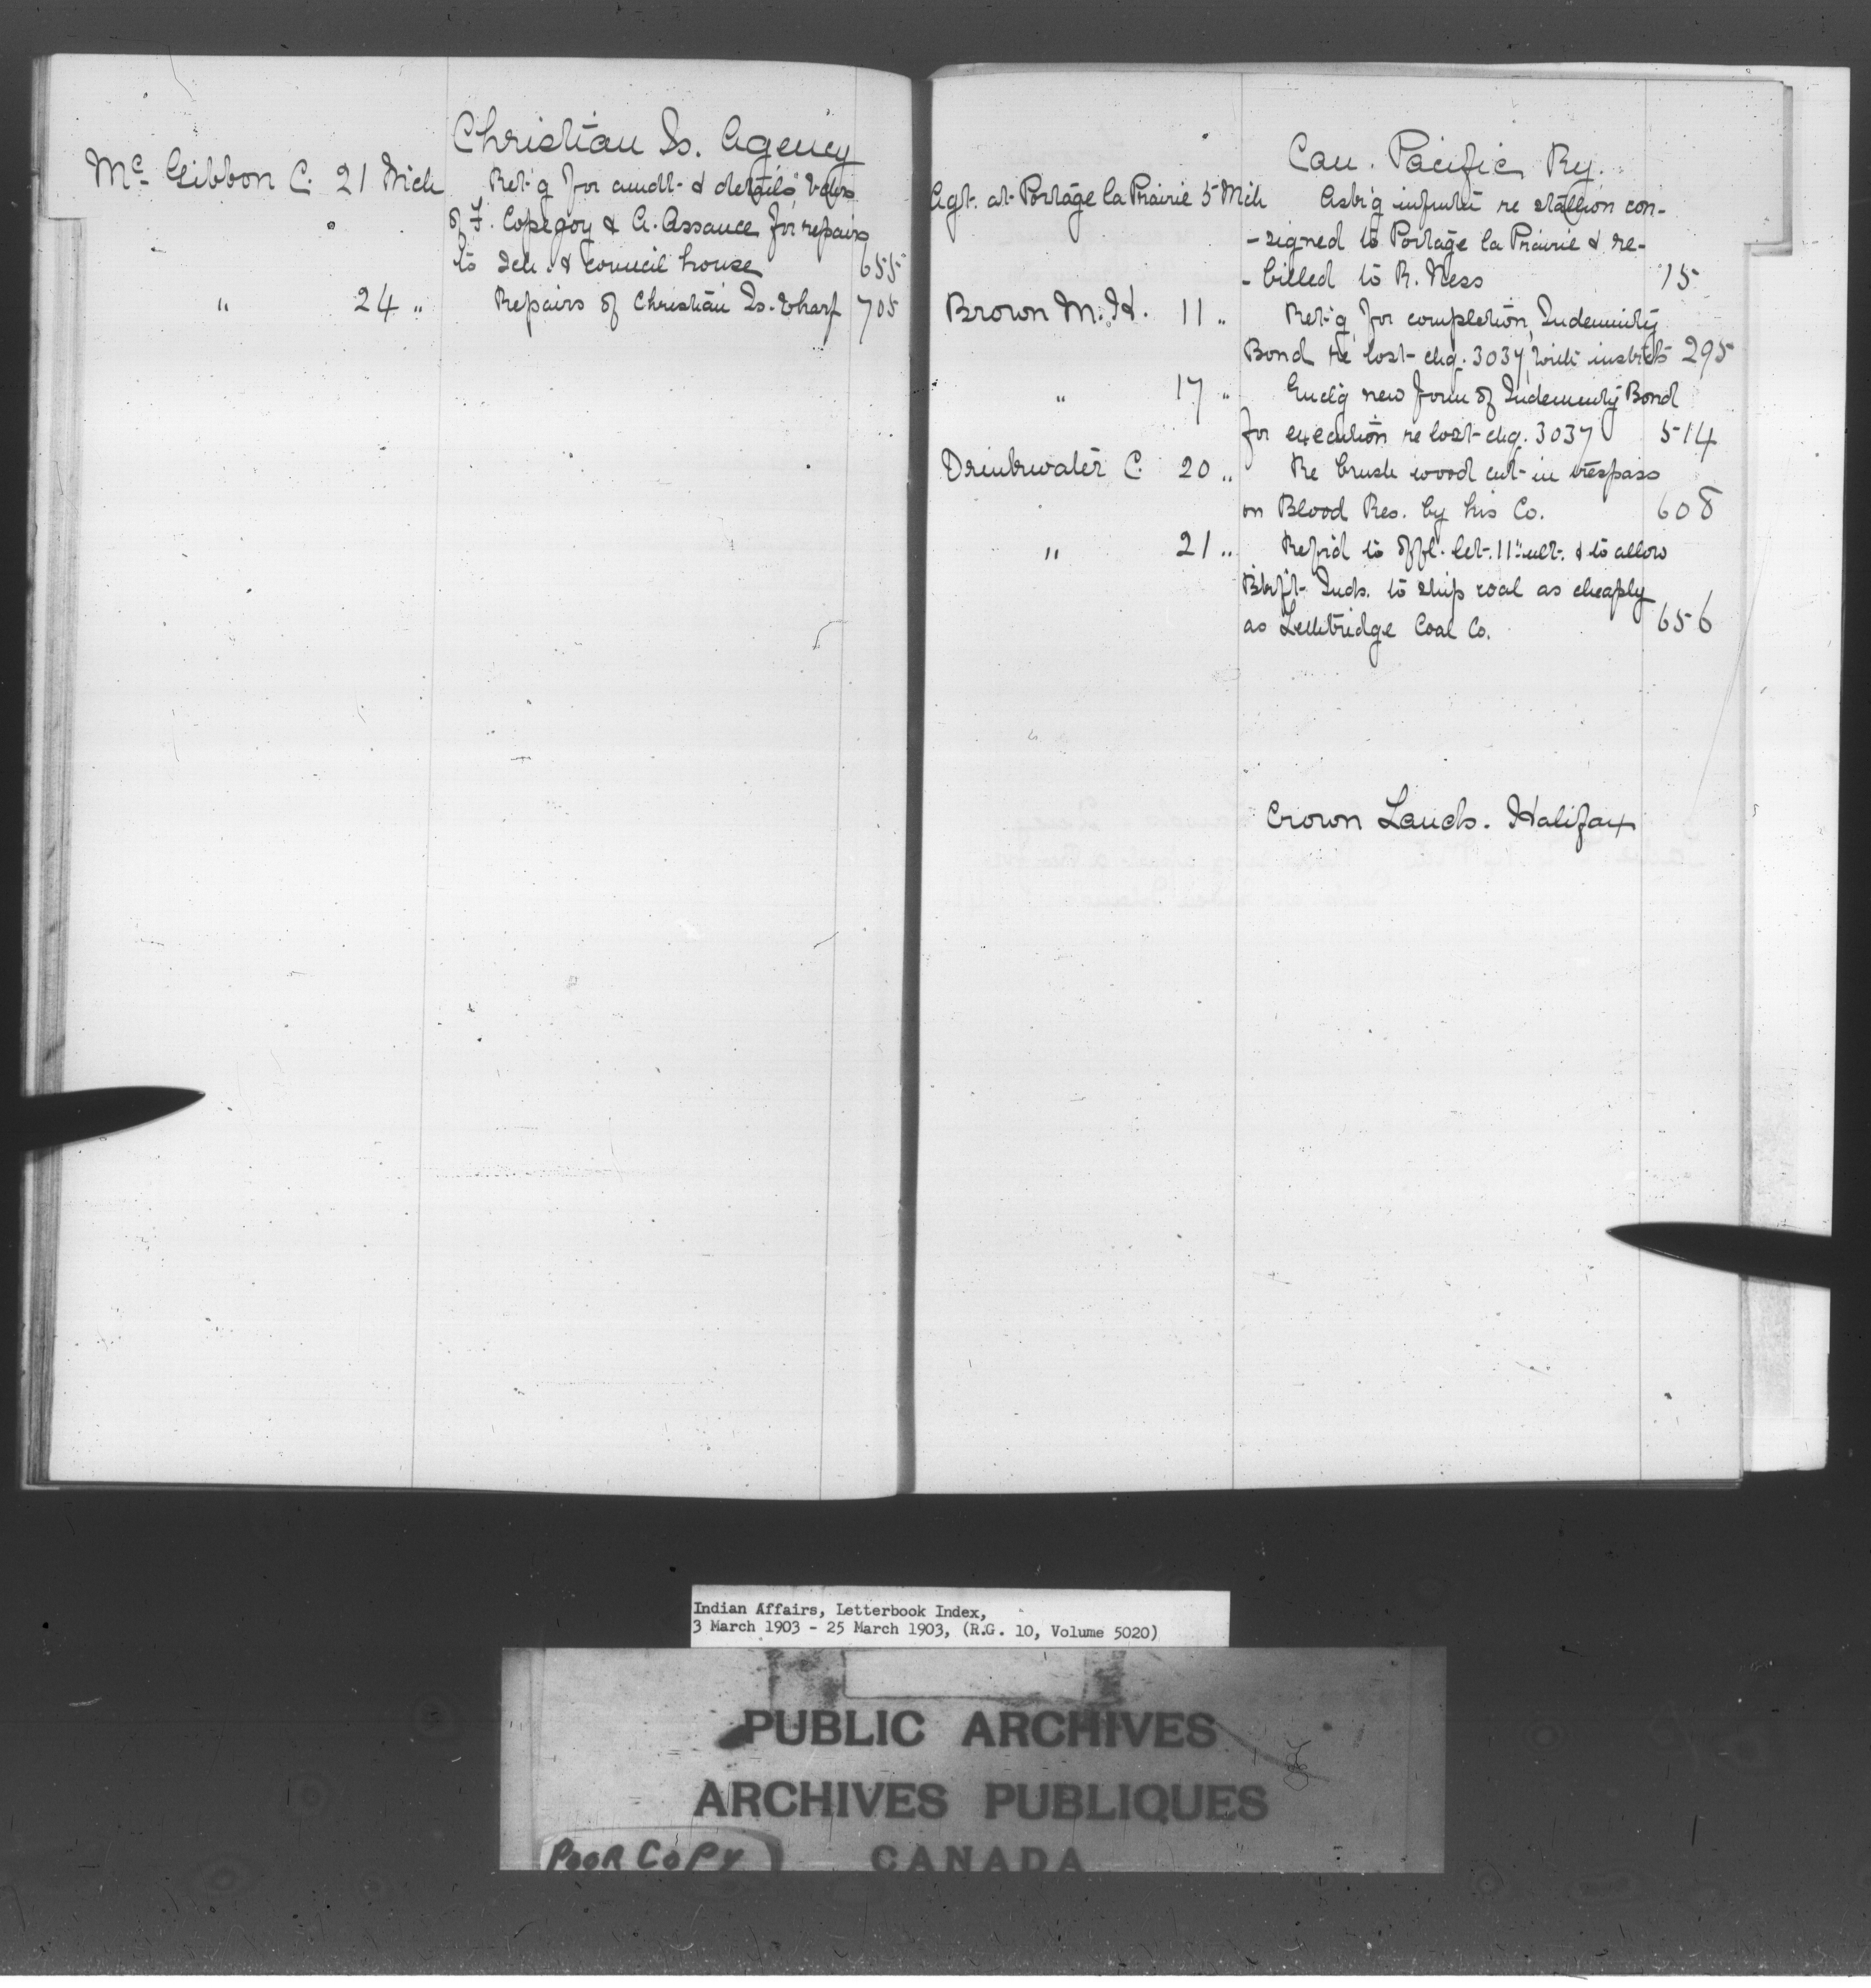 Christian Is. Agency
McGibbon C. 21 Mch Ret'g for amdt. & details vchrs
of F. Copegoy & A. Assance for repairs
to sch. & council house 655
" 24 " Repairs of Christian Is. wharf 705
Can. Pacific Ry.
Agt. at Portage la Prairie 5 Mch Ask'g infmtn re stallion con-
-signed to Portage la Prairie & re-
-billed to R. Ness 15
Brown M. H. 11 " Ret'g for completion, Indemnity
Bond re lost chq. 3037, with instrcts 295
" 17 " Encl'g new form of Indemnity Bond
for execution re lost chq. 3037 514
Drinkwater C. 20 " Re brush wood cut in trespass
on Blood Res. by his Co. 608
" 21 " Ref'd to offl. let. 11" ult. & to allow
Blkft. Inds. to ship coal as cheaply
as Lethbridge Coal Co. 656
Crown Lands. Halifax
Indian Affairs, Letterbook Index,
3 March 1903 - 25 March 1903, (R.G. 10, Volume 5020)
PUBLIC ARCHIVES
ARCHIVES PUBLIQUES
POOR COPY CANADA